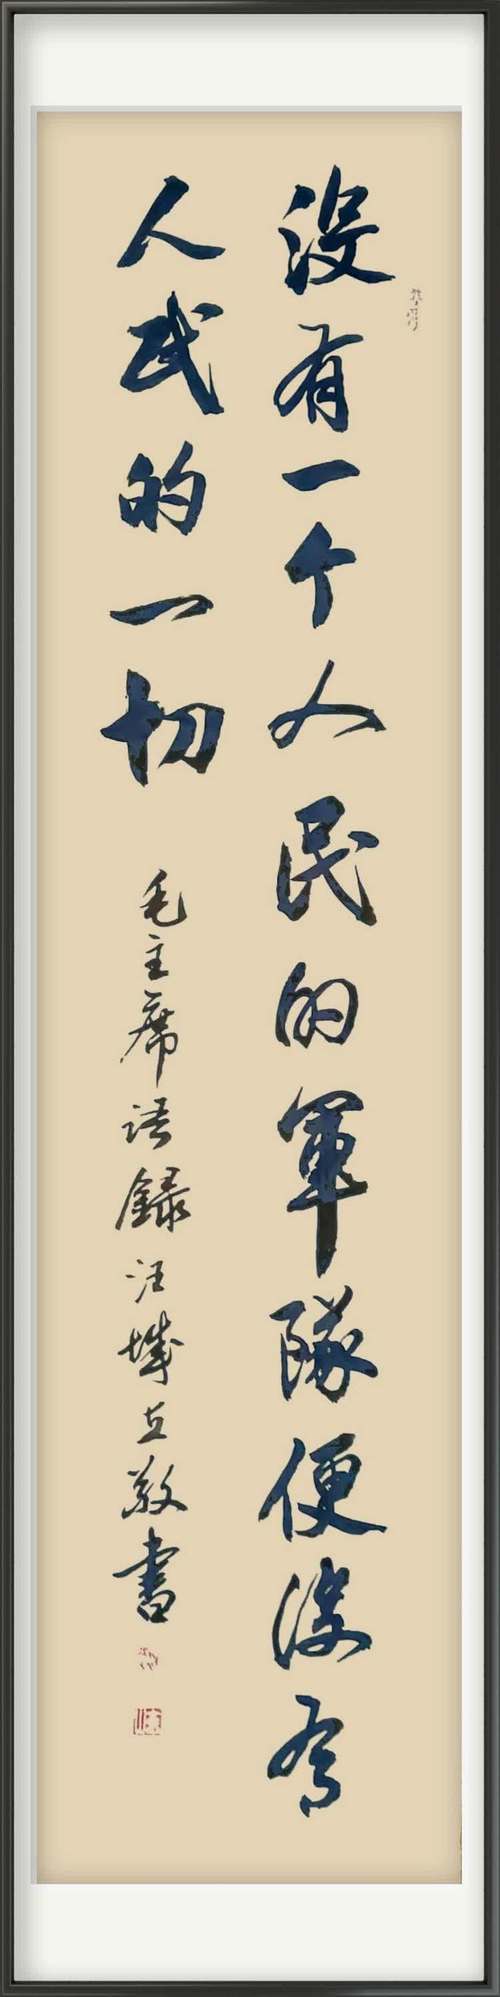 没有一个人民的軍隊便没有
人民的一切
毛主席语録汪城立敬書